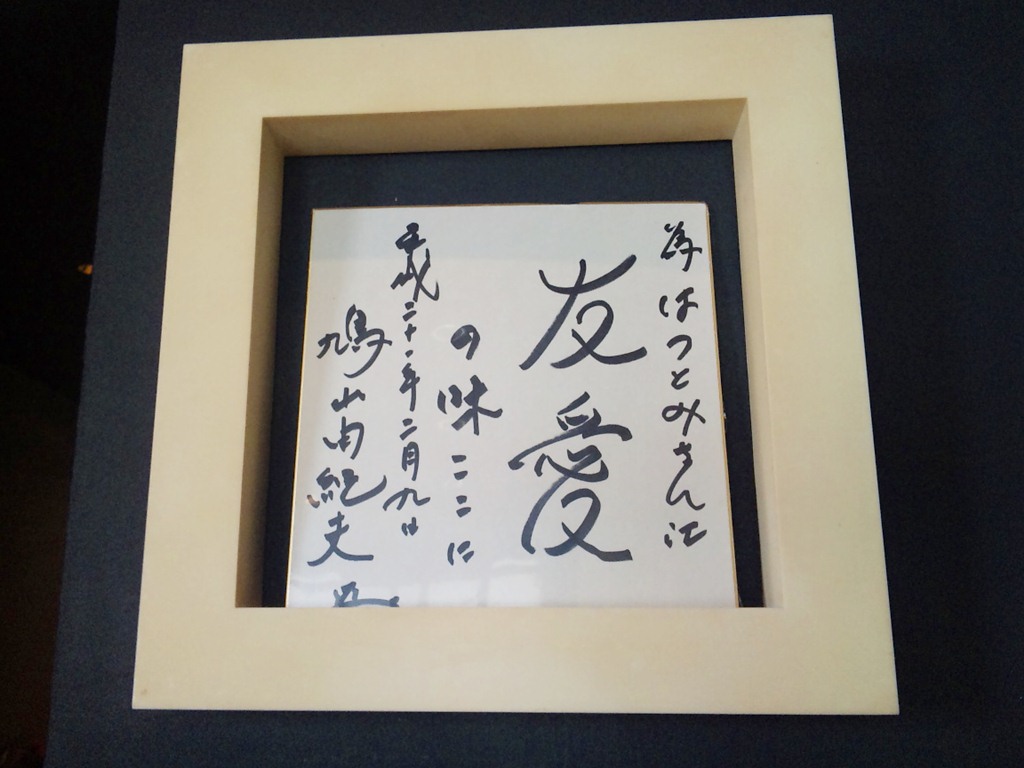 為はつとみさん江
友愛
の味ここに
平成二十一年二月九日
鳩山由紀夫